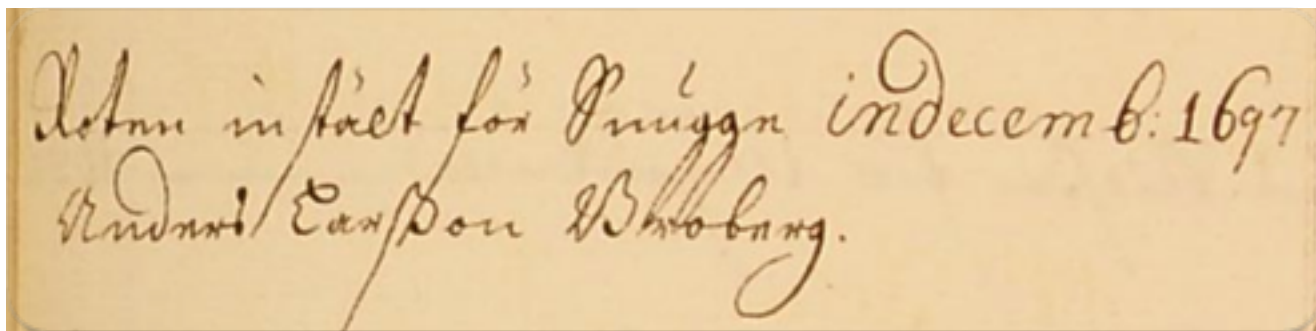 Roten instält för Snugge in decemb: 1697
Anders Larßon Broberg.